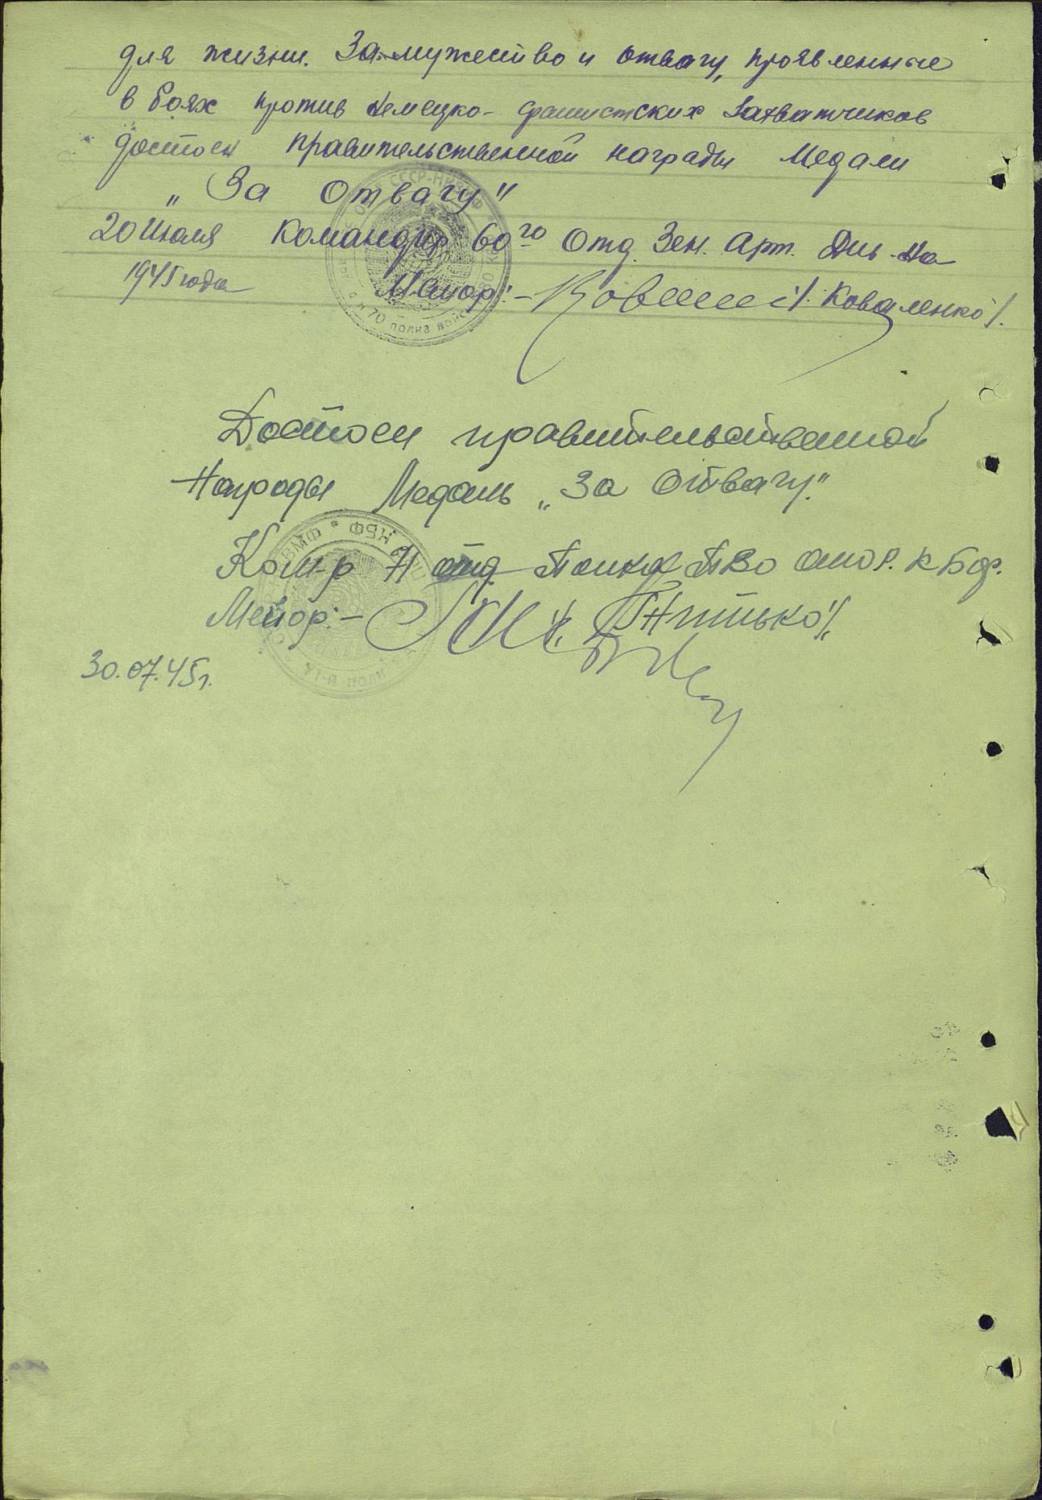 для жизни. За мужество и отвагу, проявленные
в боях против немецко-фашистских захватчиков
достоен правительственной награды Медали
„За Отвагу"
20 Июля Командир 60го Отд. Зен. Арт. Див-на
1945 года Майор:- /Коваленко/.
Достоен правительственной
Награды Медаль „За отвагу."
Ком-р отд. Полка ПВО К.Б.Ф.
Майор:-
30.07.45г.